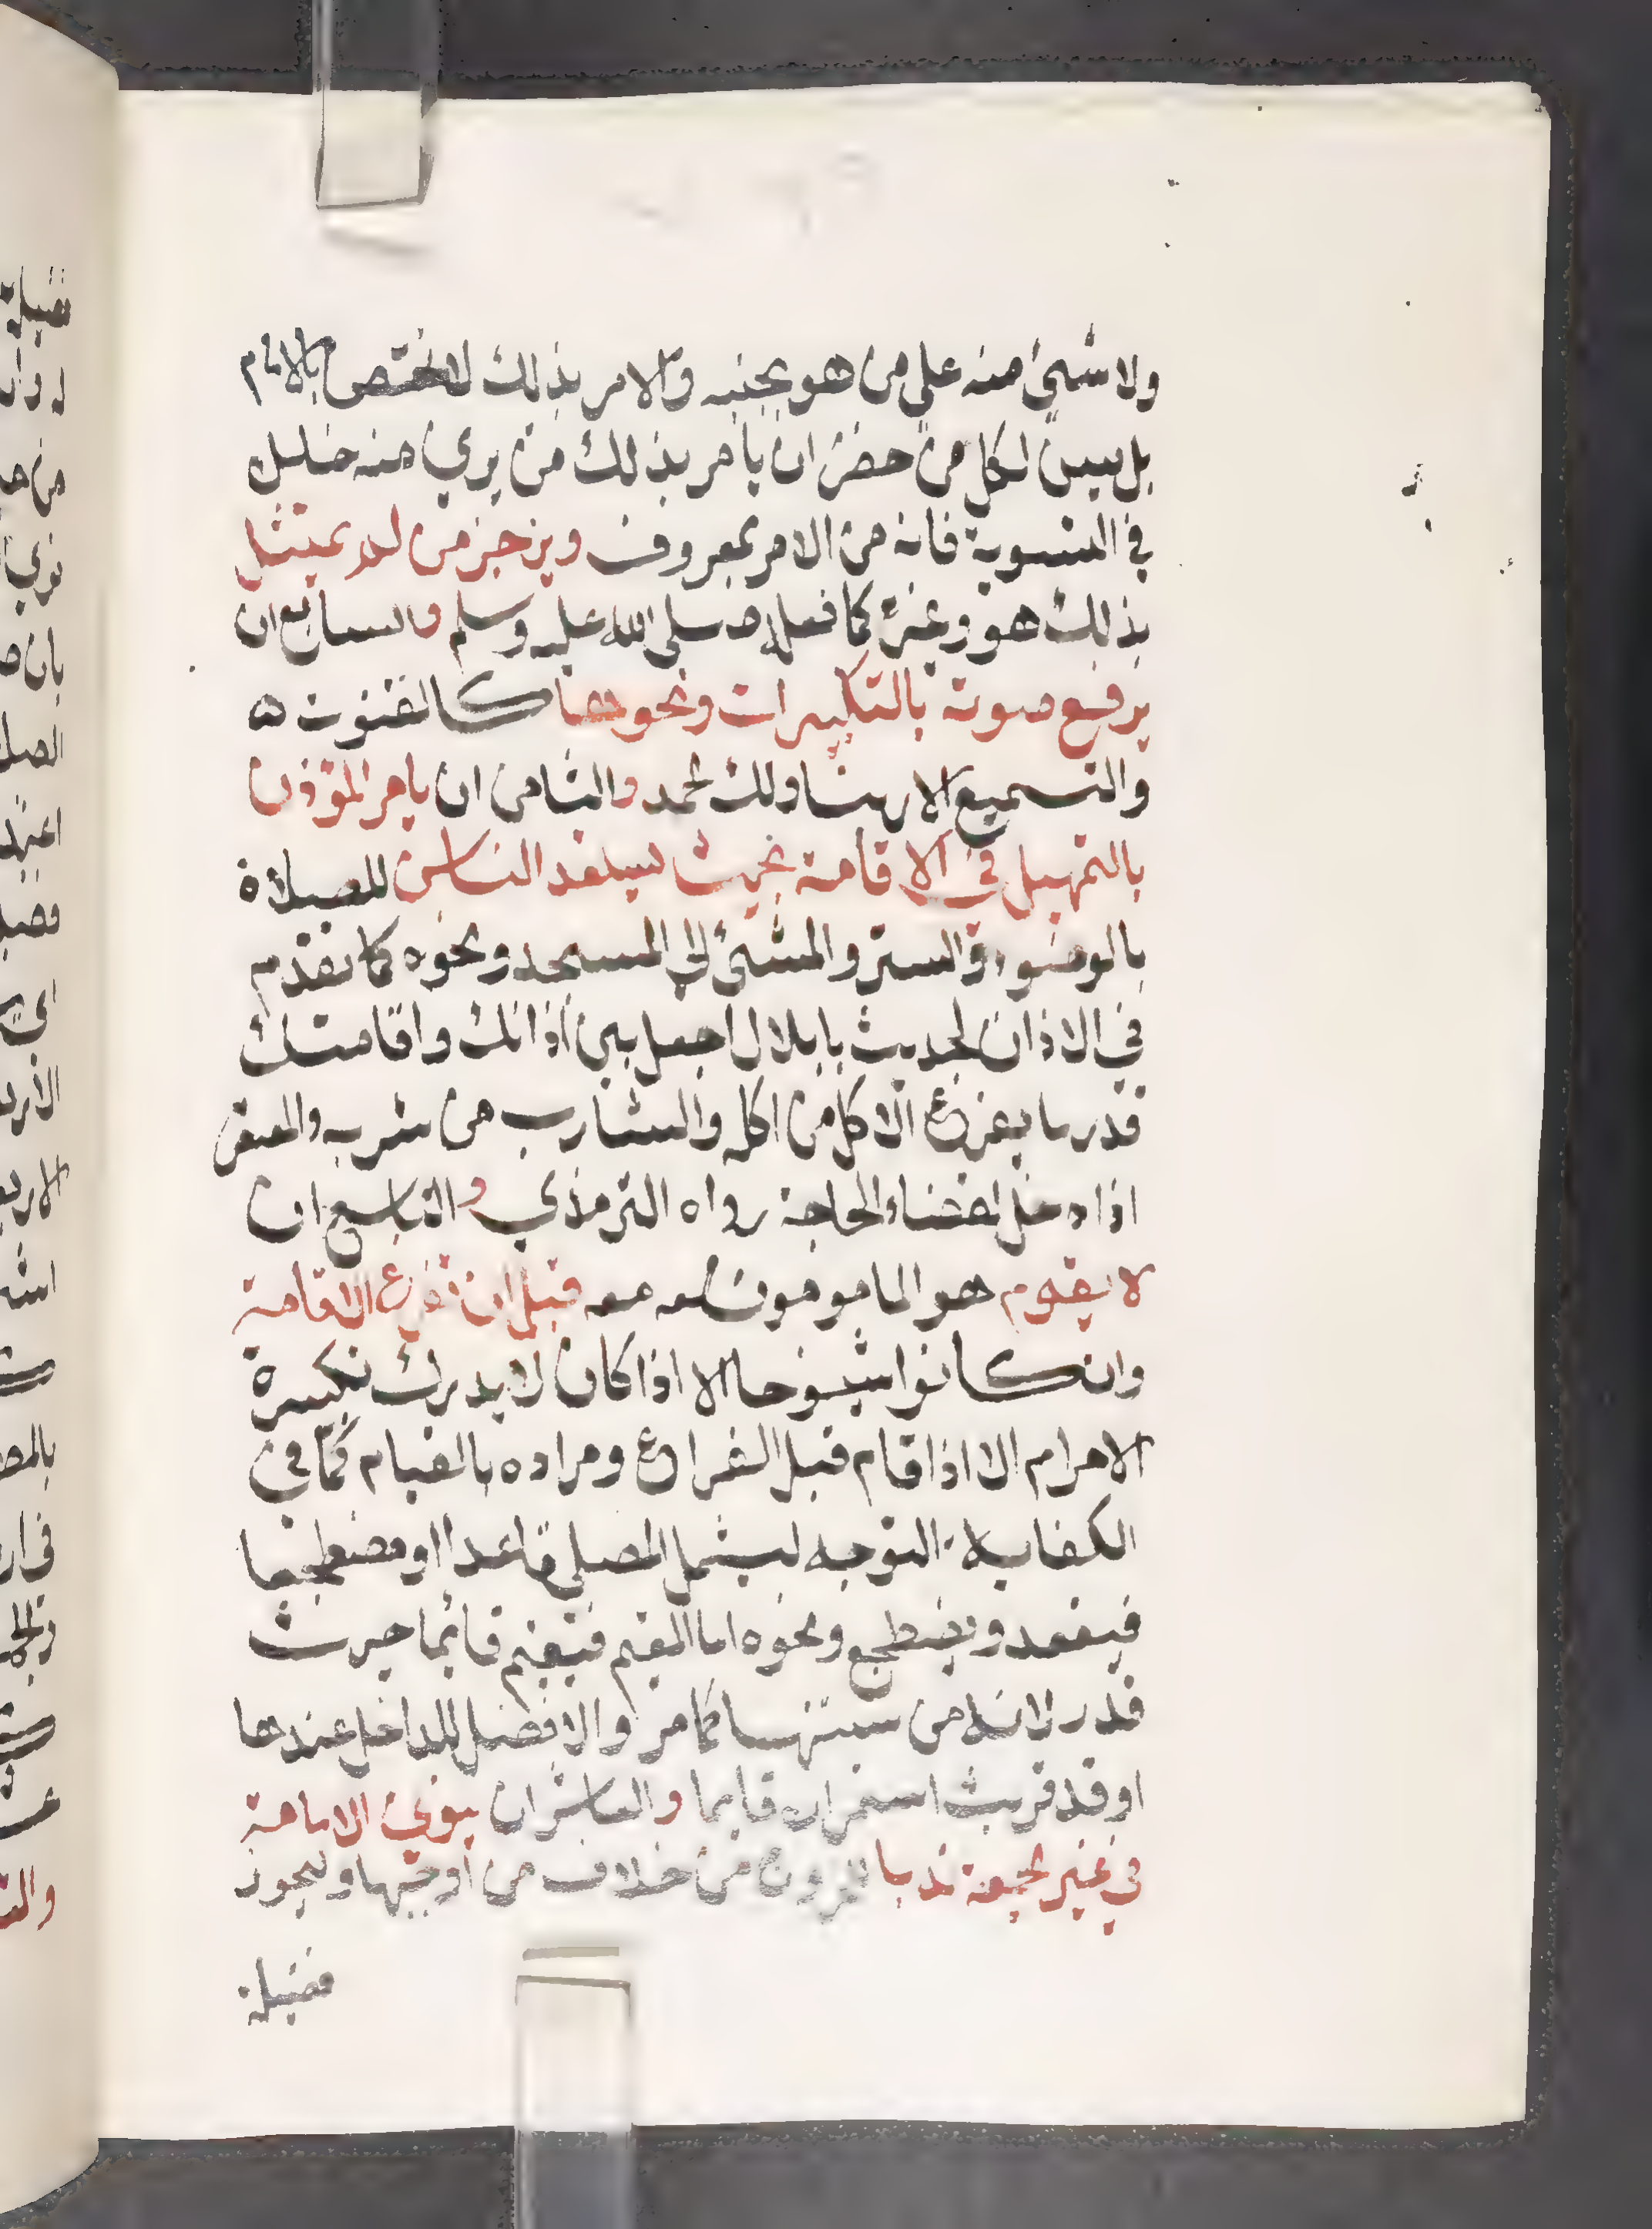 ولا شيئ منه على من هو بجنبه والامر بذلك لا يختص بالامام
بل يسن لكل من حضر ان يامر بذلك من يري منه خلل
في التسوية فانه من الامر بمعروف ويزجر من لم يمتثل
بذلك هو وغيره كما فعله صلى الله عليه وسلم والسابع ان
يرفع صوته بالتكبيرات ونحوها كالقنوت ه
والتسميع لا ربنا ولك الحمد والثامن ان يامر المؤذن
بالتمهيل في الاقامة بحيث يستعد الناس للصلاة
بالوضوء والستر والمشئ الى المسجد ونحوه كما تقدم
في الاذان لحديث يا بلال اجعل بين اذانك واقامتك
قدر ما يفرغ الاكل من اكله والشارب من شربه والمعتصر
اذا دخل لقضاء الحاجة رواه الترمذي والتاسع ان
لا يقوم هو والمامومون معه قبل ان تفرغ الاقامة
وان كانوا شيوخا الا اذا كان لا يدرك تكبيرة
الاحرام الا اذا قام قبل الفراغ ومراده بالقيام كما في
الكفاية التوجه ليشمل المصلي قاعدا او مضطجعا
فيقعد ويضطجع ونحوه اما المقيم فيقيم قائما حيث
قدر لانه من سننها كما مر والافضل للداخل عندها
او قد قربت استمراره قايما والعاشر ان ينوي الامامة
في غير الجمعة ندبا للخروج من خلاف من اوجبها وليحوز
فضيلة